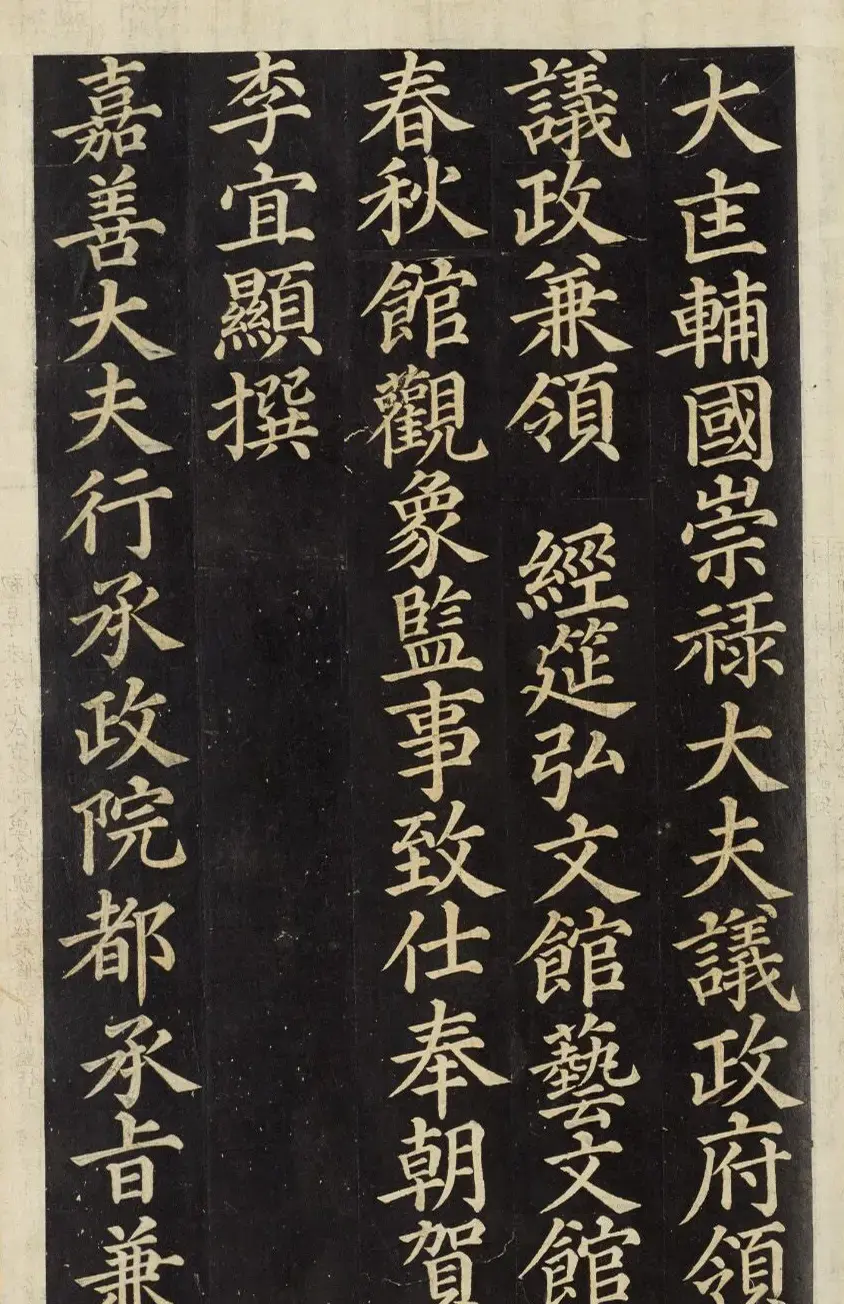 大匡輔國崇祿大夫議政府領
議政兼領 經筵弘文館藝文館
春秋館觀象監事致仕奉朝賀
李宜顯撰
嘉善大夫行承政院都承旨兼